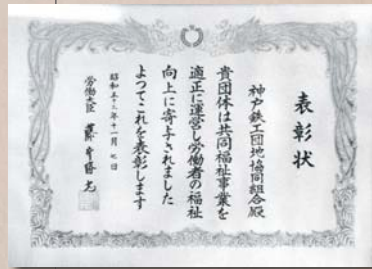 表彰状
神戸鉄工団地協同組合殿
貴団体は共同福祉事業を
適正に運営し労働者の福祉
向上に寄与されました
よってこれを表彰します
昭和五十三年十一月 七日
労働大臣 藤井勝志